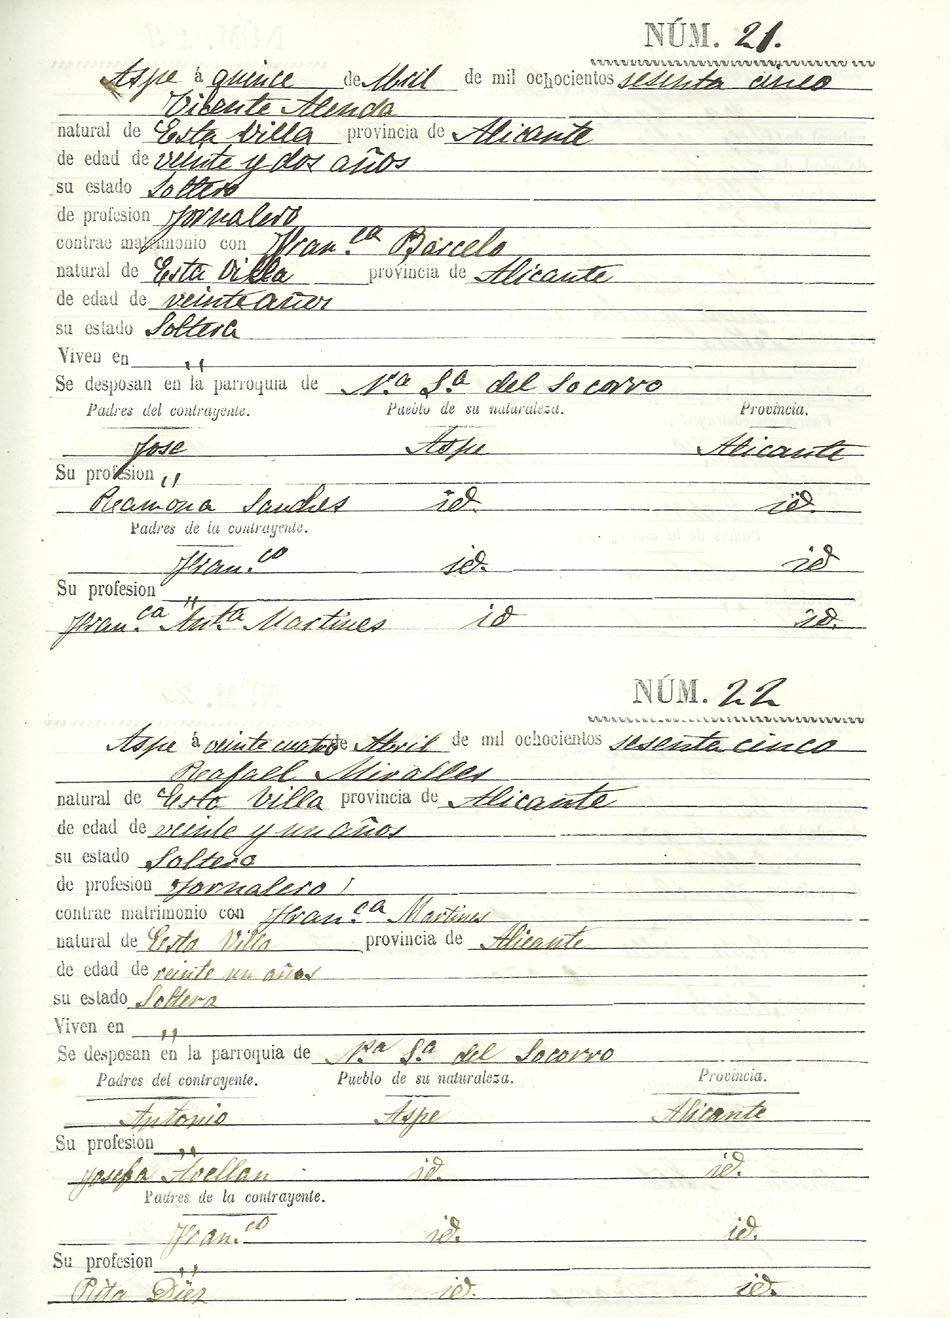 NÚM. 21.
Aspe á quince de Abril de mil ochocientos sesenta cinco
Vicente Alenda
natural de Esta Villa provincia de Alicante
de edad de veinte y dos años
su estado Soltero
de profesion Jornalero
contrae matrimonio con Fran.ca Barcelo
natural de Esta Villa provincia de Alicante
de edad de veinte años
su estado Soltera
Viven en "
Se desposan en la parroquia de N.a S.a del Socorro
Padres del contrayente. Pueblo de su naturaleza. Provincia.
Jose Aspe Alicante
Su profesion "
Ramona Sanches id. id.
Padres de la contrayente.
Fran.co id. id
Su profesion "
Fran.ca Ant.a Martines id id.
NÚM. 22
Aspe á veinte cuatro de Abril de mil ochocientos sesenta cinco
Rafael Miralles
natural de Esta Villa provincia de Alicante
de edad de veinte y un años
su estado Soltero
de profesion Jornalero
contrae matrimonio con Fran.ca Martines
natural de Esta Villa provincia de Alicante
de edad de veinte un años
su estado Soltera
Viven en "
Se desposan en la parroquia de N.a S.a del Socorro
Padres del contrayente. Pueblo de su naturaleza. Provincia.
Antonio Aspe Alicante
Su profesion "
Josefa Avellan id. id.
Padres de la contrayente.
Fran.co id. id.
Su profesion "
Rita Diez id. id.